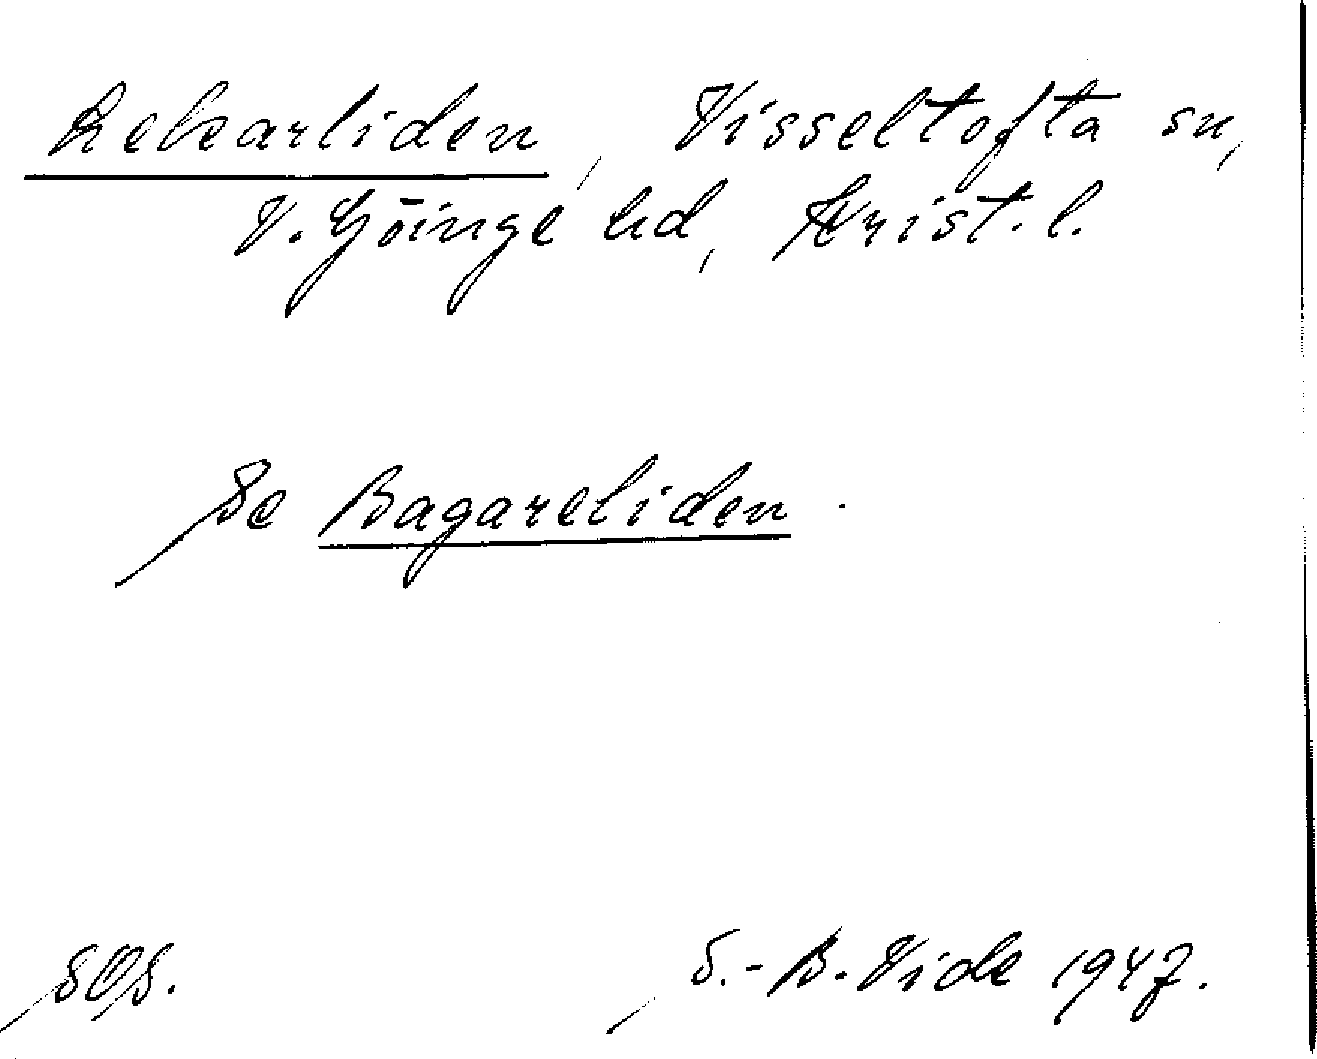 Rekarliden, Visseltofta sn,
V. Göinge hd, Krist. l.
Se Bagareliden.
SOS.
S.-B. Vide 1947.